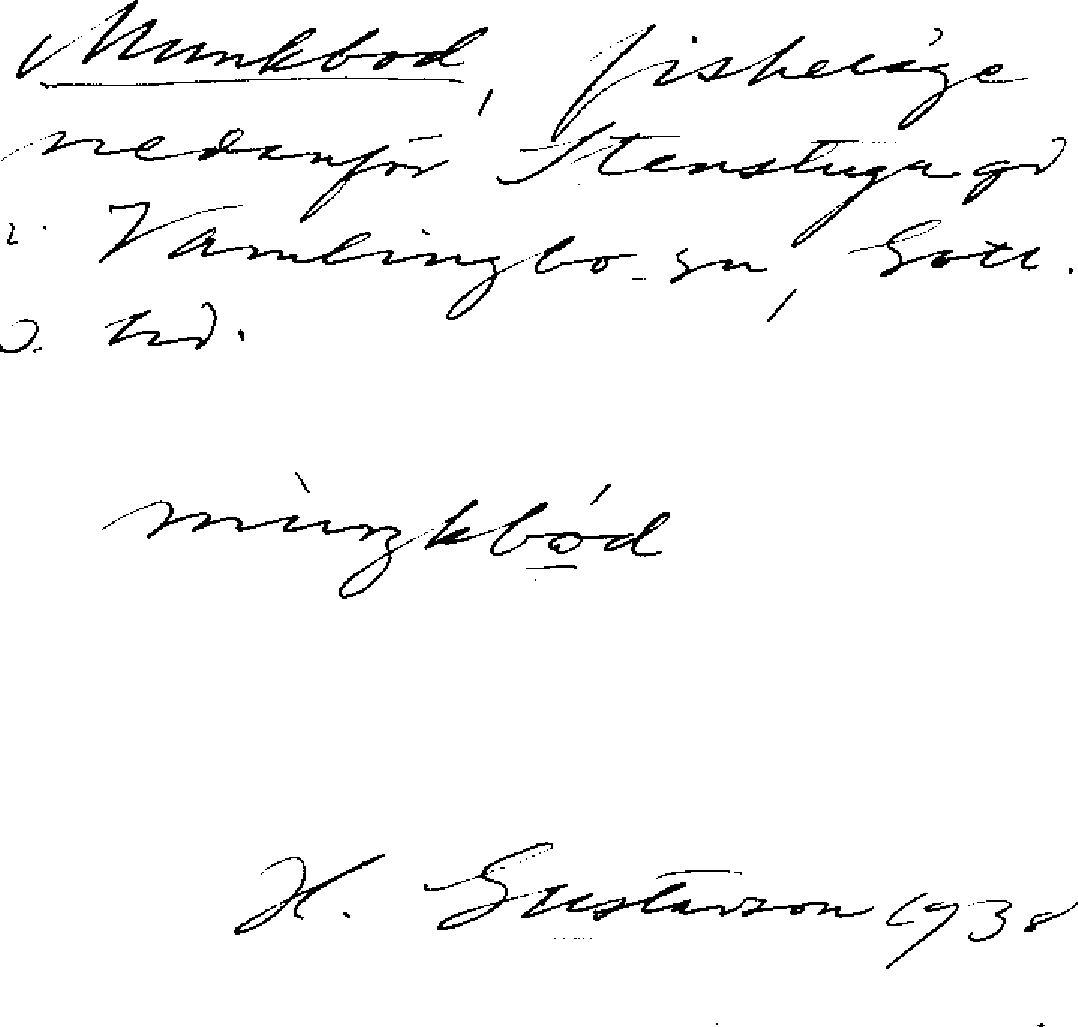 Munkbod, fiskeläge
nedanför Stenstuga gd
i Vamlingbo sn, Gotl.
s. hd.
mùŋkbǫ́d
H. Gustavson 1938